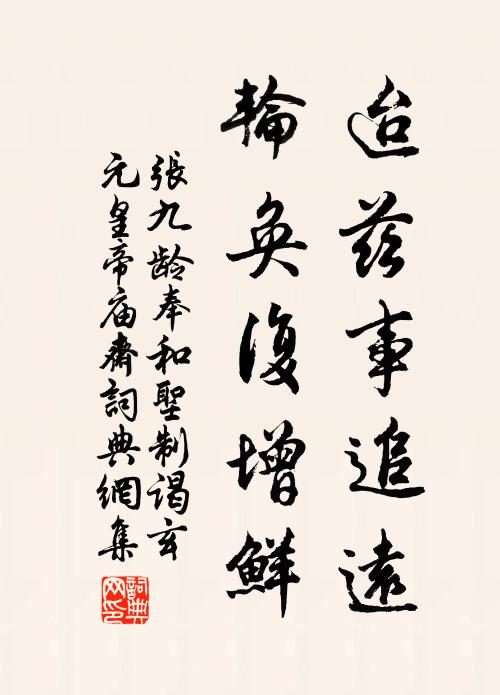 迨茲事追遠
輪奐復增鮮
張九齡奉和聖制謁玄
元皇帝廟齋詞典網集